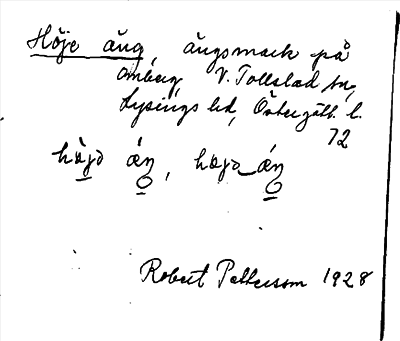 Höje äng, ängsmark på
Omberg, V. Tollstad sn,
Lysings hd, Östergötl. l.
72
Robert Pettersson 1928